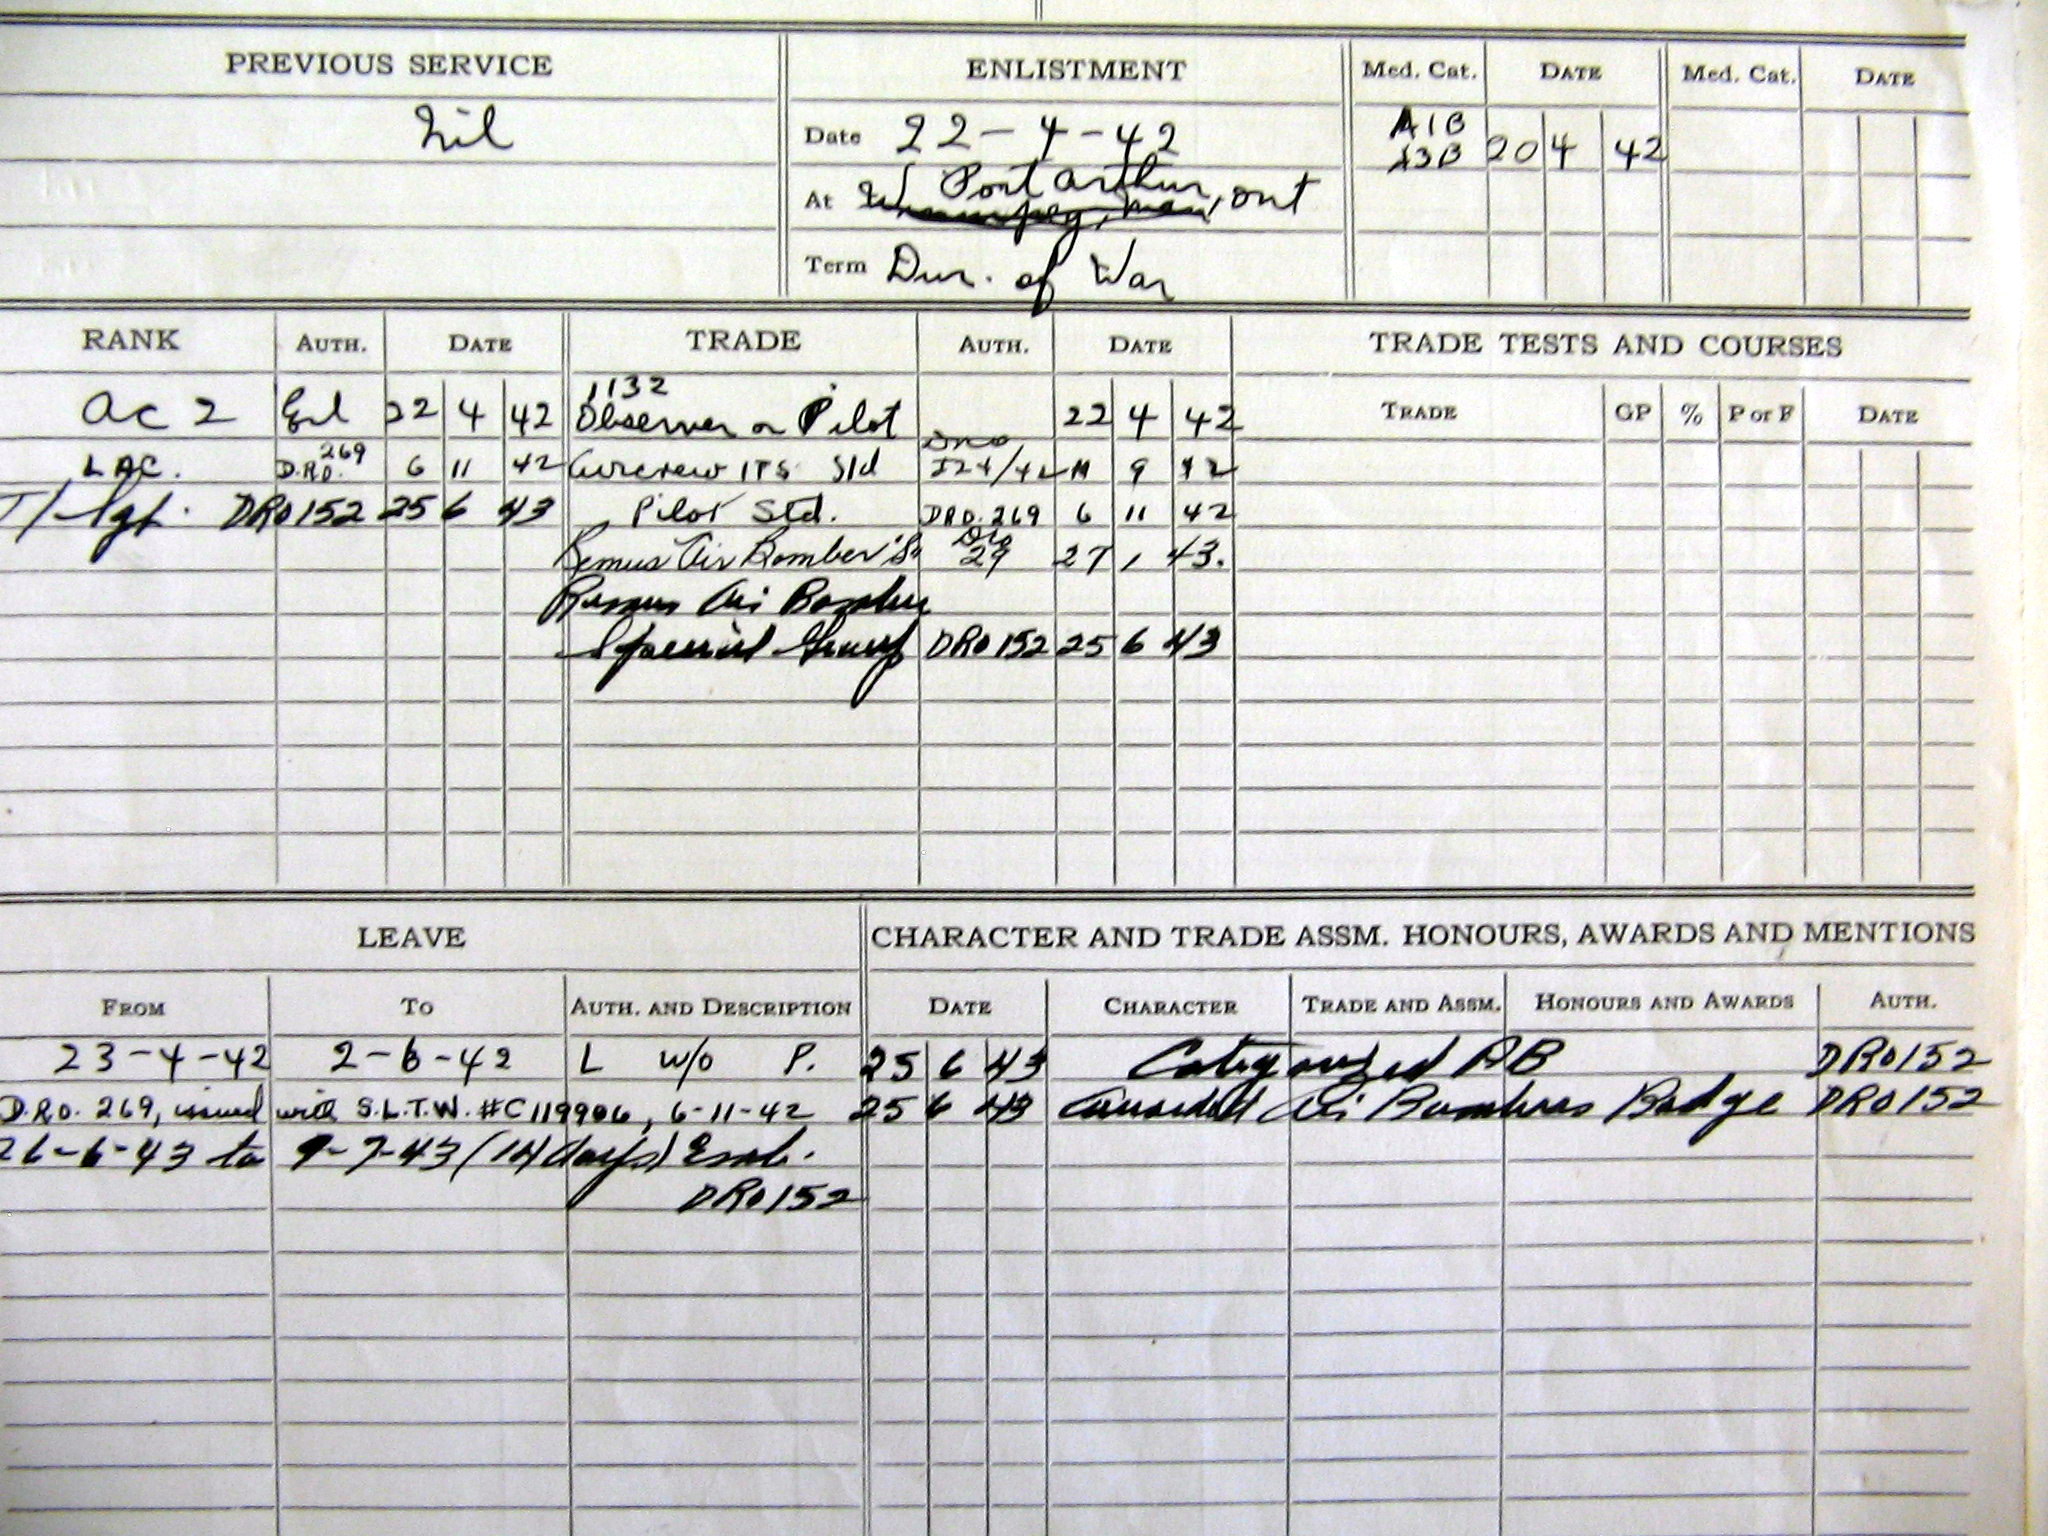 PREVIOUS SERVICE ENLISTMENT Med. Cat. DATE Med. Cat. DATE
Nil Date 22-4-42 A1B
A3B 20 4 42
Port Arthur,
At Winnipeg, Man, Ont
Term Dur. of War
RANK AUTH. DATE TRADE AUTH. DATE TRADE TESTS AND COURSES
1132
AC 2 Enl 22 4 42 Observer or Pilot 22 4 42 TRADE GP % P or F DATE
269 DRO
LAC. D.R.O. 6 11 42 Aircrew ITS Std 9 42
T/Sgt. DRO152 25 6 43 Pilot Std. DRO. 269 6 11 42
DRO
Remus Air Bomber 29 27 1 43.
Remus Air Bomber
Special Group DRO152 25 6 43
LEAVE CHARACTER AND TRADE ASSM. HONOURS, AWARDS AND MENTIONS
FROM TO AUTH. AND DESCRIPTION DATE CHARACTER TRADE AND ASSM. HONOURS AND AWARDS AUTH.
23-4-42 2-6-42 L w/o P. 25 6 43 Categorized AB DRO152
D.R.O. 269, issued with S.L.T.W. #C119906, 6-11-42 25 6 43 Awarded Air Bombers Badge DRO152
26-6-43 to 9-7-43 (14 days) Emb.
DRO152